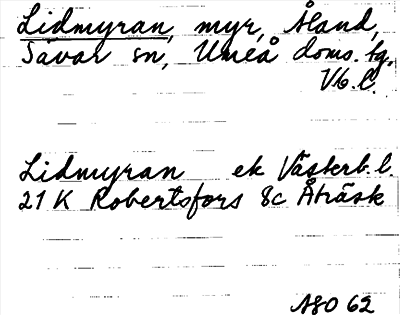 Lidmyran, myr, Åland,
Sävar sn, Umeå doms. tg.
Vb. l.
Lidmyran ek Västerb. l.
21 K Robertsfors 8c Åträsk
ASO 62